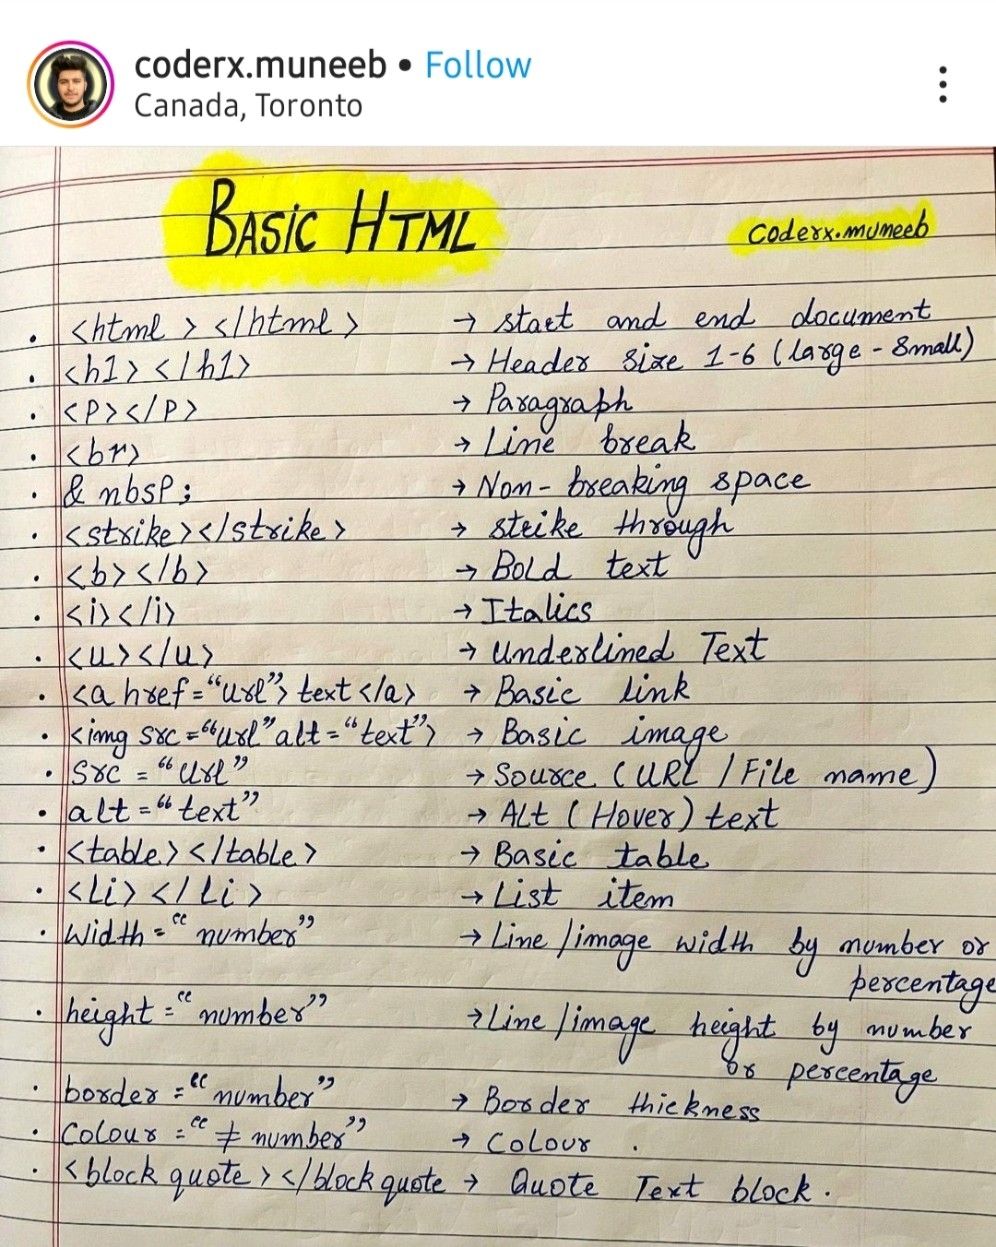 coderx.muneeb • Follow
Canada, Toronto
BASIC HTML
Coderx.muneeb
• <html > </html > → start and end document
• <h1> </h1> → Header size 1-6 (large - Small)
• <P></P> → Paragraph
• <br> → Line break
• & nbsP; → Non-breaking space
• <strike></strike> → strike through
• <b></b> → Bold text
• <i></i> → Italics
• <u></u> → Underlined Text
• <a href="url"> text </a> → Basic link
• <img src="url" alt="text"> → Basic image
• Src = "url" → Source (URL / File name)
• alt = "text" → Alt (Hover) text
• <table> </table> → Basic table
• <Li> </Li> → List item
• Width = "number" → Line /image width by number or
percentage
• height = "number" → Line /image height by number
or percentage
• border = "number" → Border thickness
• Colour = "≠ number" → Colour .
• <block quote> </block quote → Quote Text block.